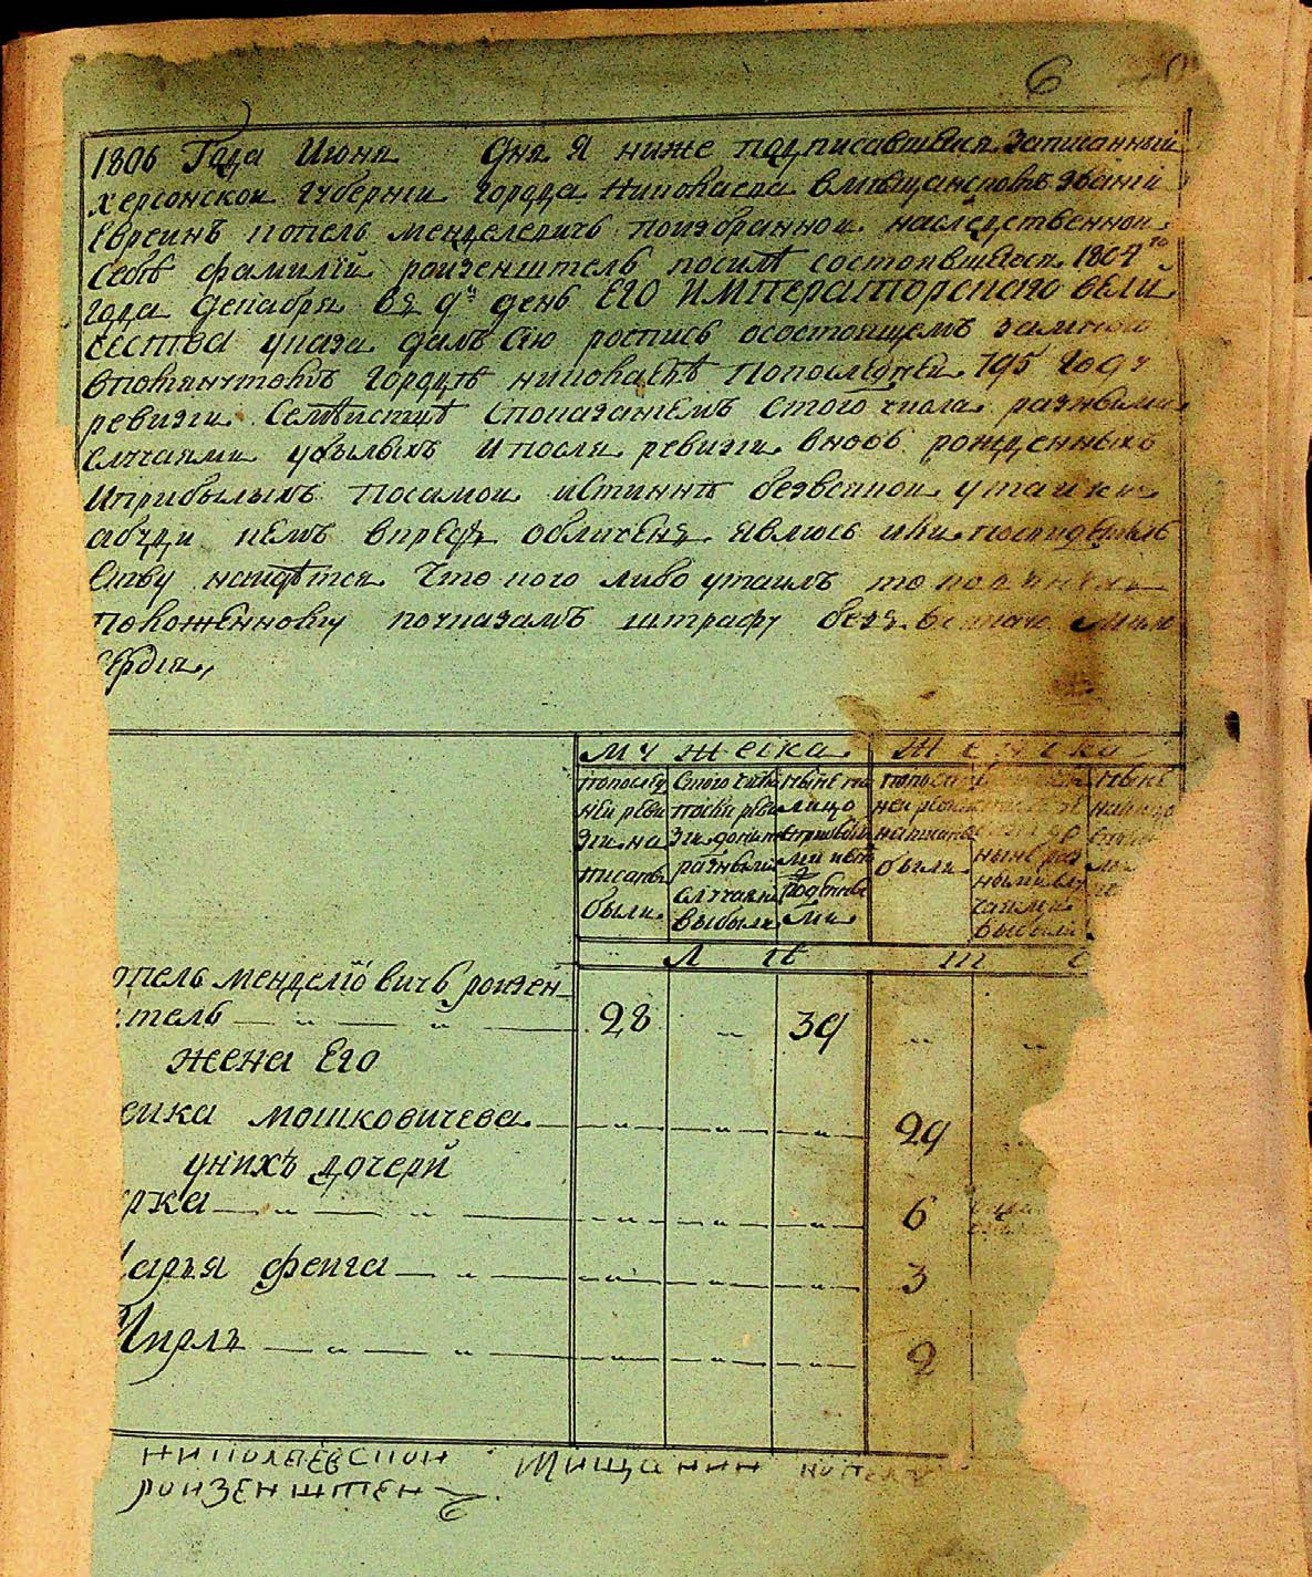 6
1806 Года Июня Дня Я ниже подписавшеися Записанный
херсонской губернии города Николаева вмещанскомъ званiи
Евреинъ копель менделевичъ поизбранной наследственной
себѣ фамилiи роизенштель посилѣ состоявшагося 1804го
года Декабря въ 9й день ЕГО ИМПераторскаго вели
чества указа далъ сiю роспись осостоящемъ Замною
впомянутомъ городѣ николаевѣ Попоследней 795 Году
ревизiи Семѣиствѣ споказанiемъ стого числа разными
случаями убылыхъ И после ревизiи вновь рожденныхъ
Иприбылыхъ Посамой истиннѣ безвсякой утайки
абуди чемъ впредь обличенъ явлюсь или посвидетель
ству наидѣтся Что кого либо утаилъ то
положенному поуказамъ штрафу безъ всякаго мило
сердiя,
мужеска Женска
попослед
ней реви
зiи на
писаны
были
Стого числа
после реви
зiи доныне
разными
случаями
выбыли
Ныне на
лицо
ми
ней
написаны
были
ныне раз
ными слу
чаями
выбыли
Ныне
налицо
Л ѣ т
опель менделiовичъ роизен
тель — " — " — 28 " 39 " "
жена Его
еика мошковичева — " — " — " — 29
унихъ дочери
рка — " — " — " — " — " — 6
арья феига — " — " — " — " — 3
Чирлъ — " — " — " — " — " — 2
николаевскои Мищанин копель
роизенштен